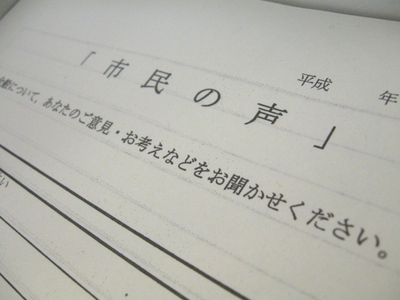 平成 年
「市民の声」
について、あなたのご意見・お考えなどをお聞かせください。
さい